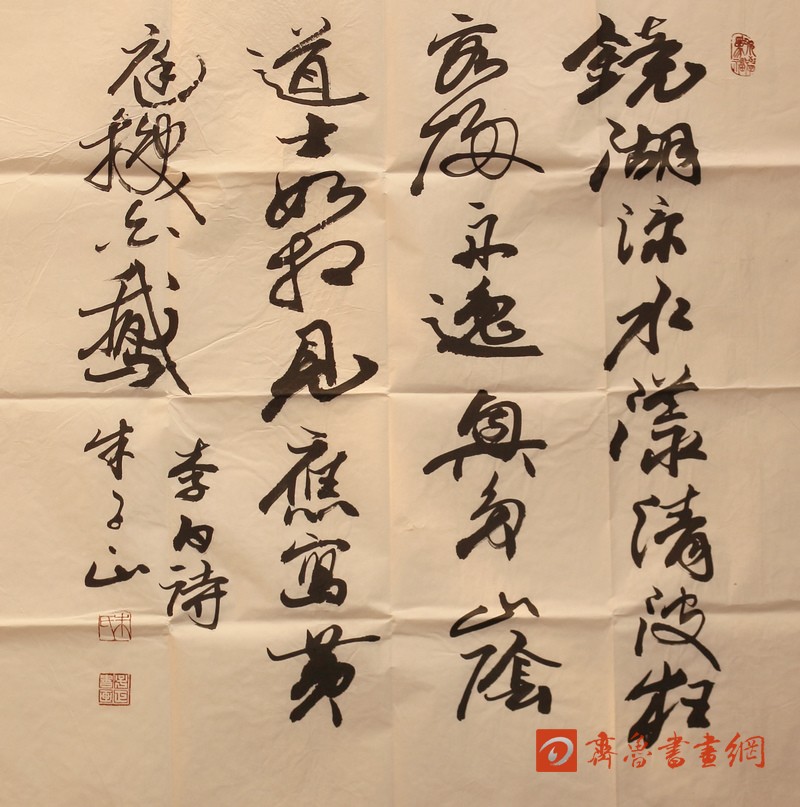 鏡湖流水漾清波狂
客歸舟逸興多山陰
道士如相見應寫黄
庭換白鵝
李白詩
朱子山
朱氏
齊魯書畫網